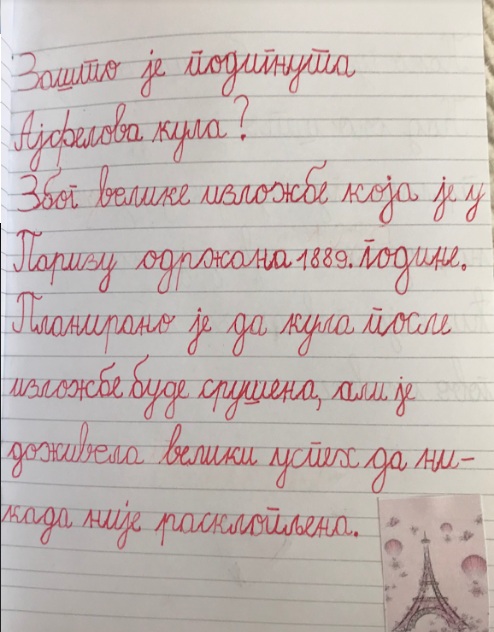 Зашто је подигнута
Ајфелова кула?
Због велике изложбе која је у
Паризу одржана 1889. године.
Планирано је да кула после
изложбе буде срушена, али је
доживела велики успех да ни-
када није расклопљена.